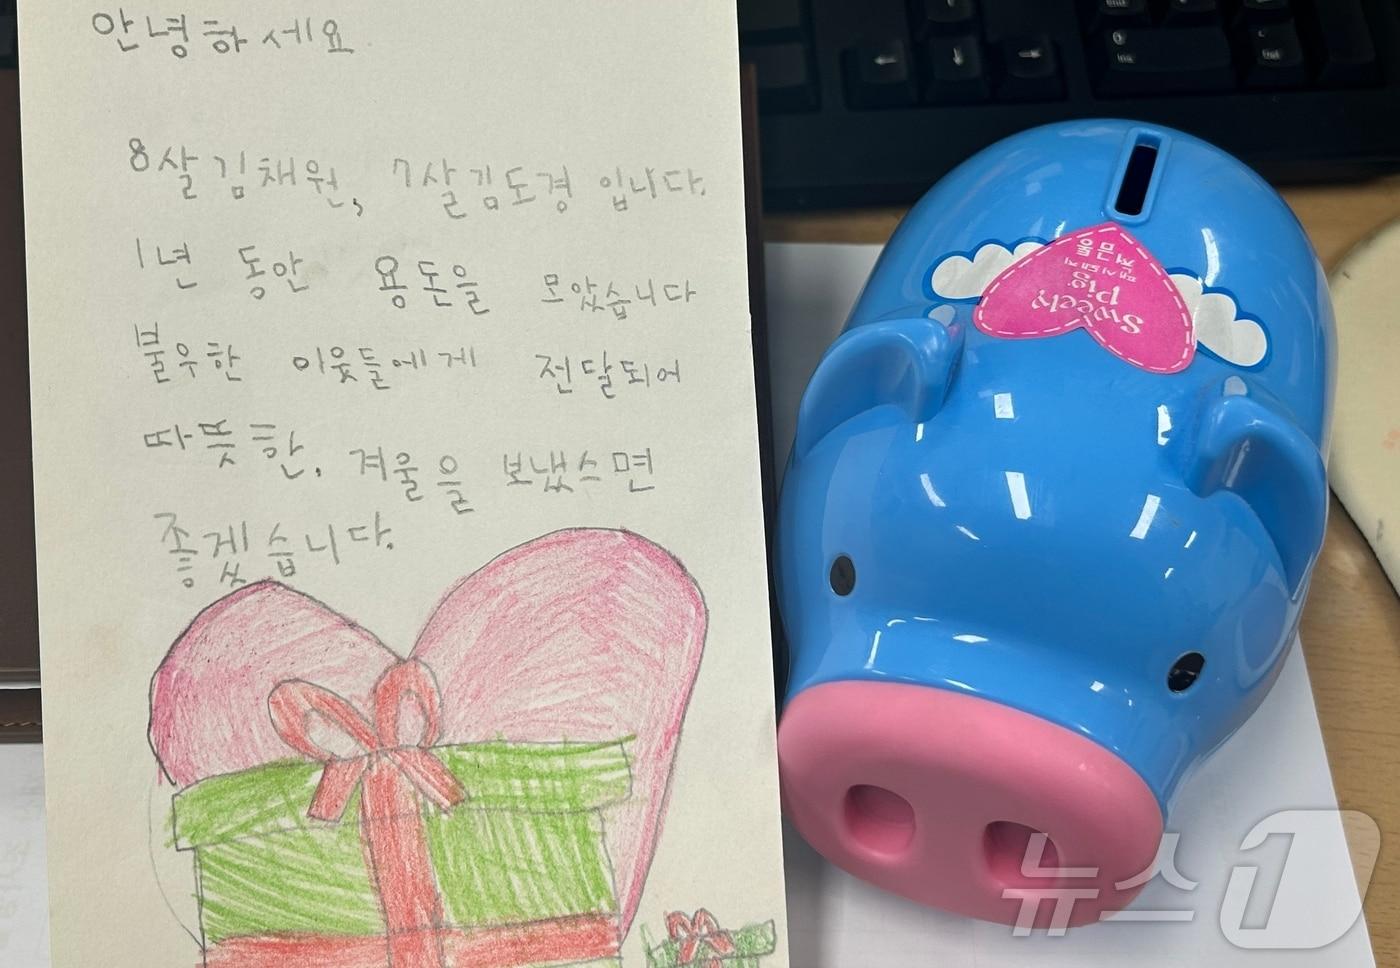 안녕하세요
8살 김채원, 7살 김도경 입니다.
1년 동안 용돈을 모았습니다
불우한 이웃들에게 전달되어
따뜻한. 겨울을 보냈스면
좋겠습니다.
Sweety
pig
뉴스1